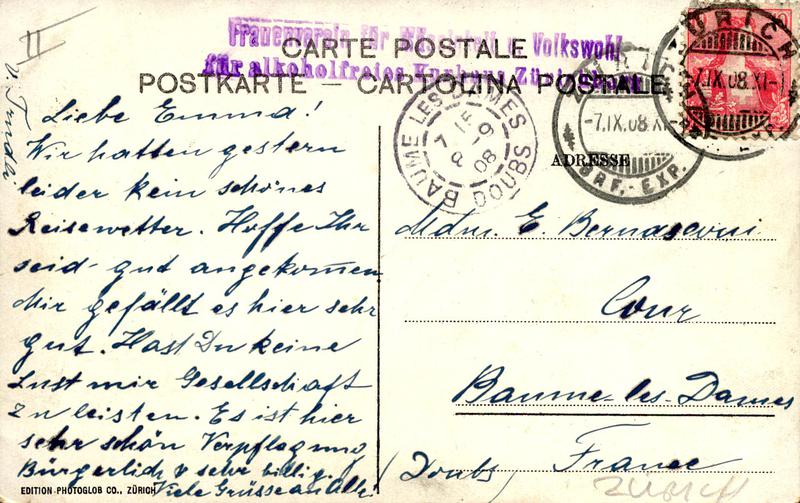 II
v. Trudi
Frauenverein für Mässigkeit u. Volkswohl
für alkoholfreies Kurhaus Zürichberg
CARTE POSTALE
POSTKARTE — CARTOLINA POSTALE
ZÜRICH
-7.IX.08.XI-
BRF.-EXP.
ZÜRICH
-7.IX.08.XI-
BAUME LES DAMES
DOUBS
ADRESSE
Liebe Emma!
Wir hatten gestern
leider kein schönes
Reisewetter. Hoffe Ihr
seid gut angekommen
Mir gefällt es hier sehr
gut. Hast Du keine
Lust mir Gesellschaft
zu leisten. Es ist hier
sehr schön Verpflegung
Bürgerlich u sehr billig.
Viele Grüsse an Alle!
Mdm. E Bernasconi
Cour
Baume-les-Dames
(Doubs) France
Zürich
EDITION PHOTOGLOB CO., ZÜRICH